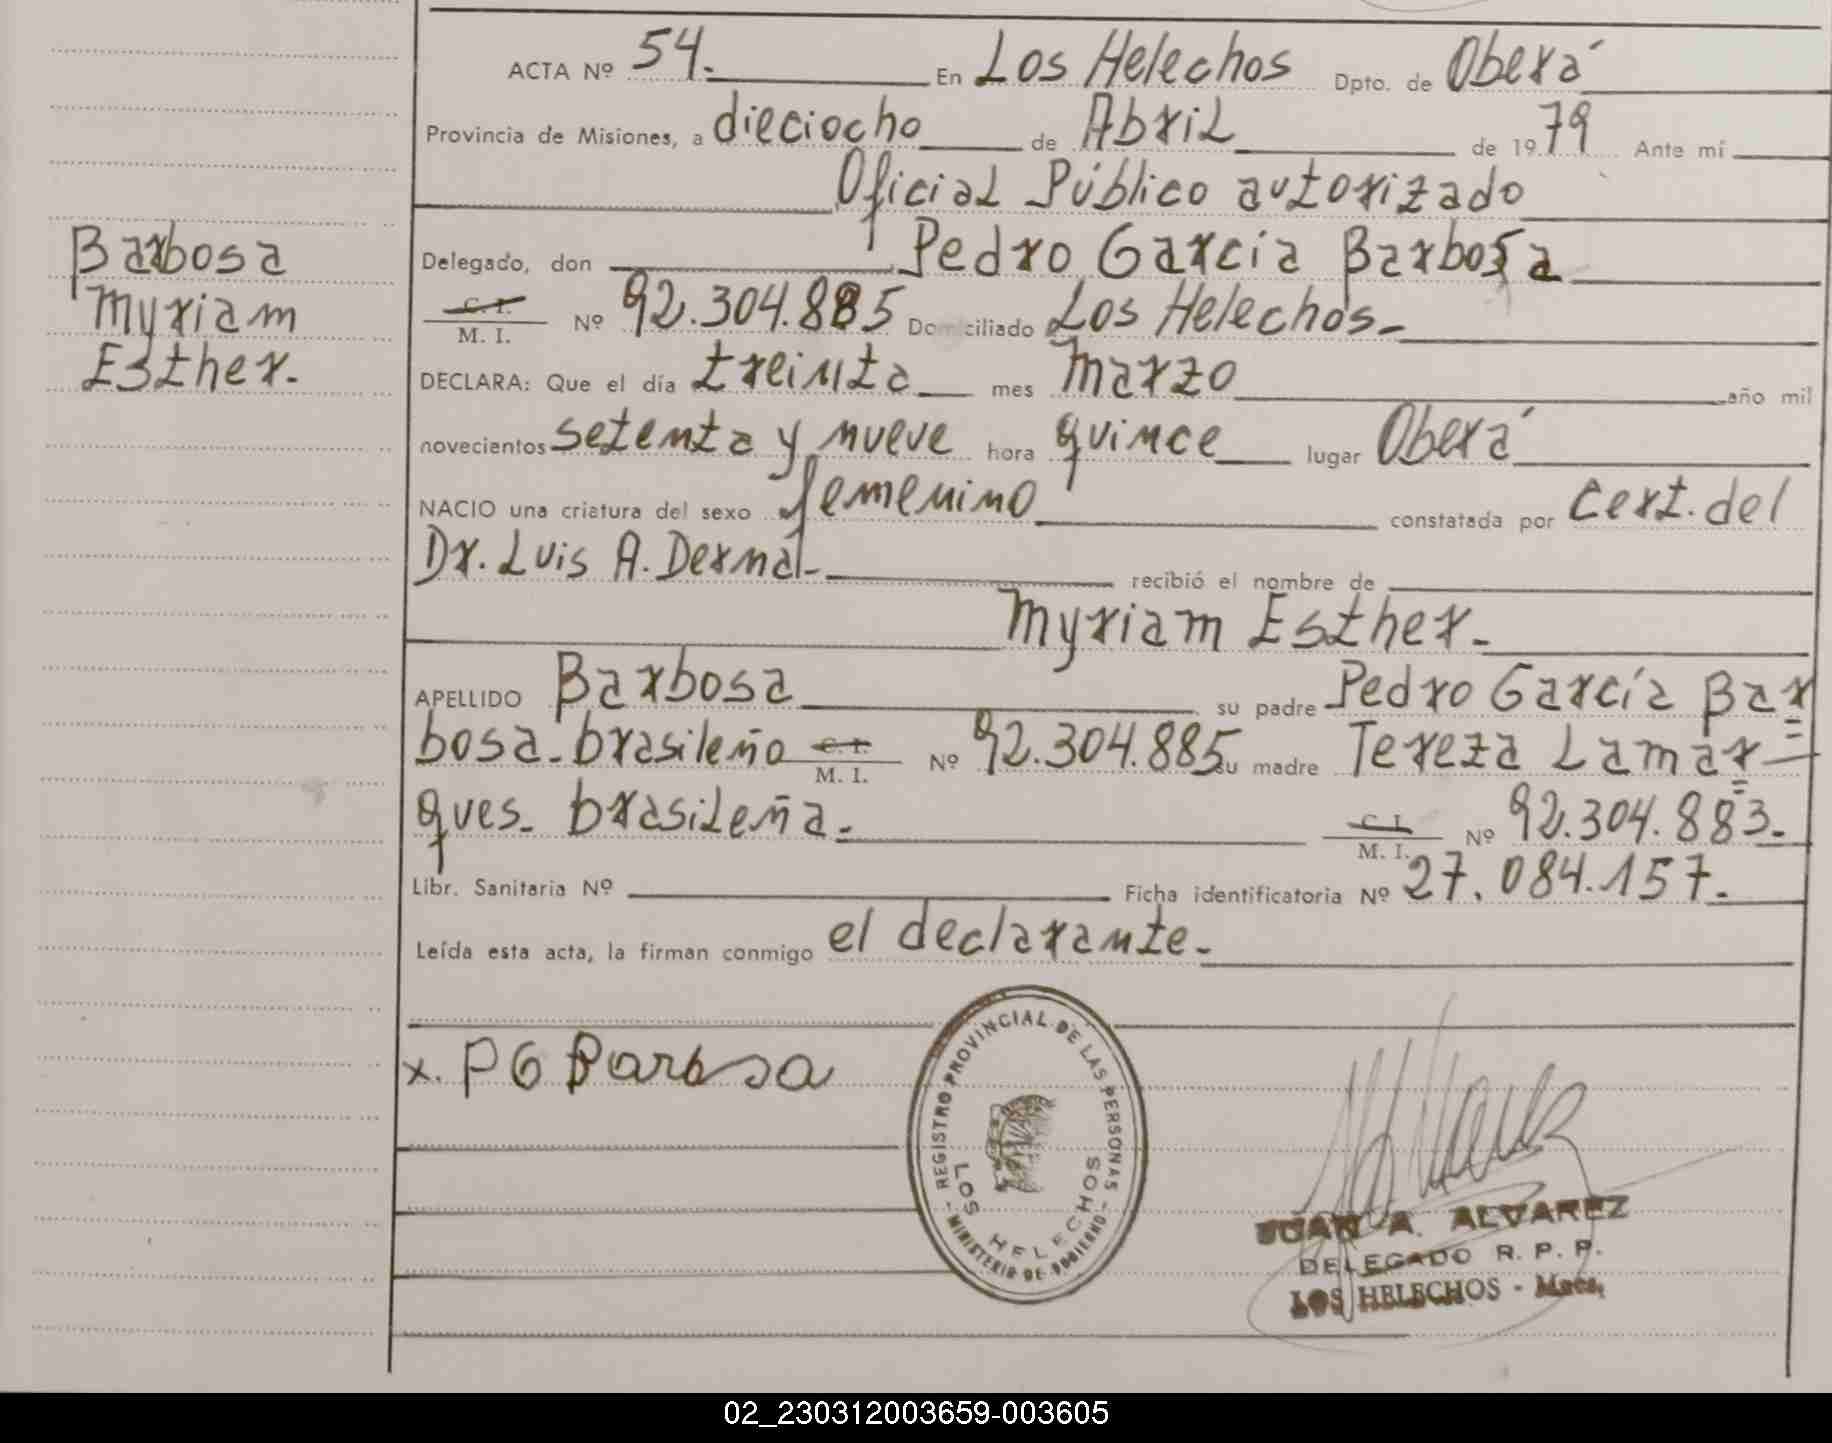 ACTA Nº 54. En Los Helechos Dpto. de Oberá
Provincia de Misiones, a dieciocho de Abril de 1979 Ante mí
Oficial Público autorizado
Delegado, don Pedro García Barbosa
C. I. M. I. Nº 92.304.885 Domiciliado Los Helechos-
DECLARA: Que el día treinta mes Marzo año mil
novecientos setenta y nueve hora quince lugar Oberá
NACIO una criatura del sexo femenino constatada por Cert. del
Dr. Luis A. Dernal- recibió el nombre de
Myriam Esther.-
APELLIDO Barbosa su padre Pedro García Bar=
bosa- brasileño C. I. M. I. Nº 92.304.885 su madre Tereza Lamar=
ques- brasileña.- C. I. M. I. Nº 92.304.883.-
Libr. Sanitaria Nº Ficha identificatoria Nº 27.084.157.-
Leída esta acta, la firman conmigo el declarante.-
Barbosa
Myriam
Esther.-
x. P G Barbosa
REGISTRO PROVINCIAL DE LAS PERSONAS
LOS HELECHOS
- MINISTERIO DE GOBIERNO -
JUAN A. ALVAREZ
DELEGADO R. P. P.
LOS HELECHOS - Mnes.
02_230312003659-003605